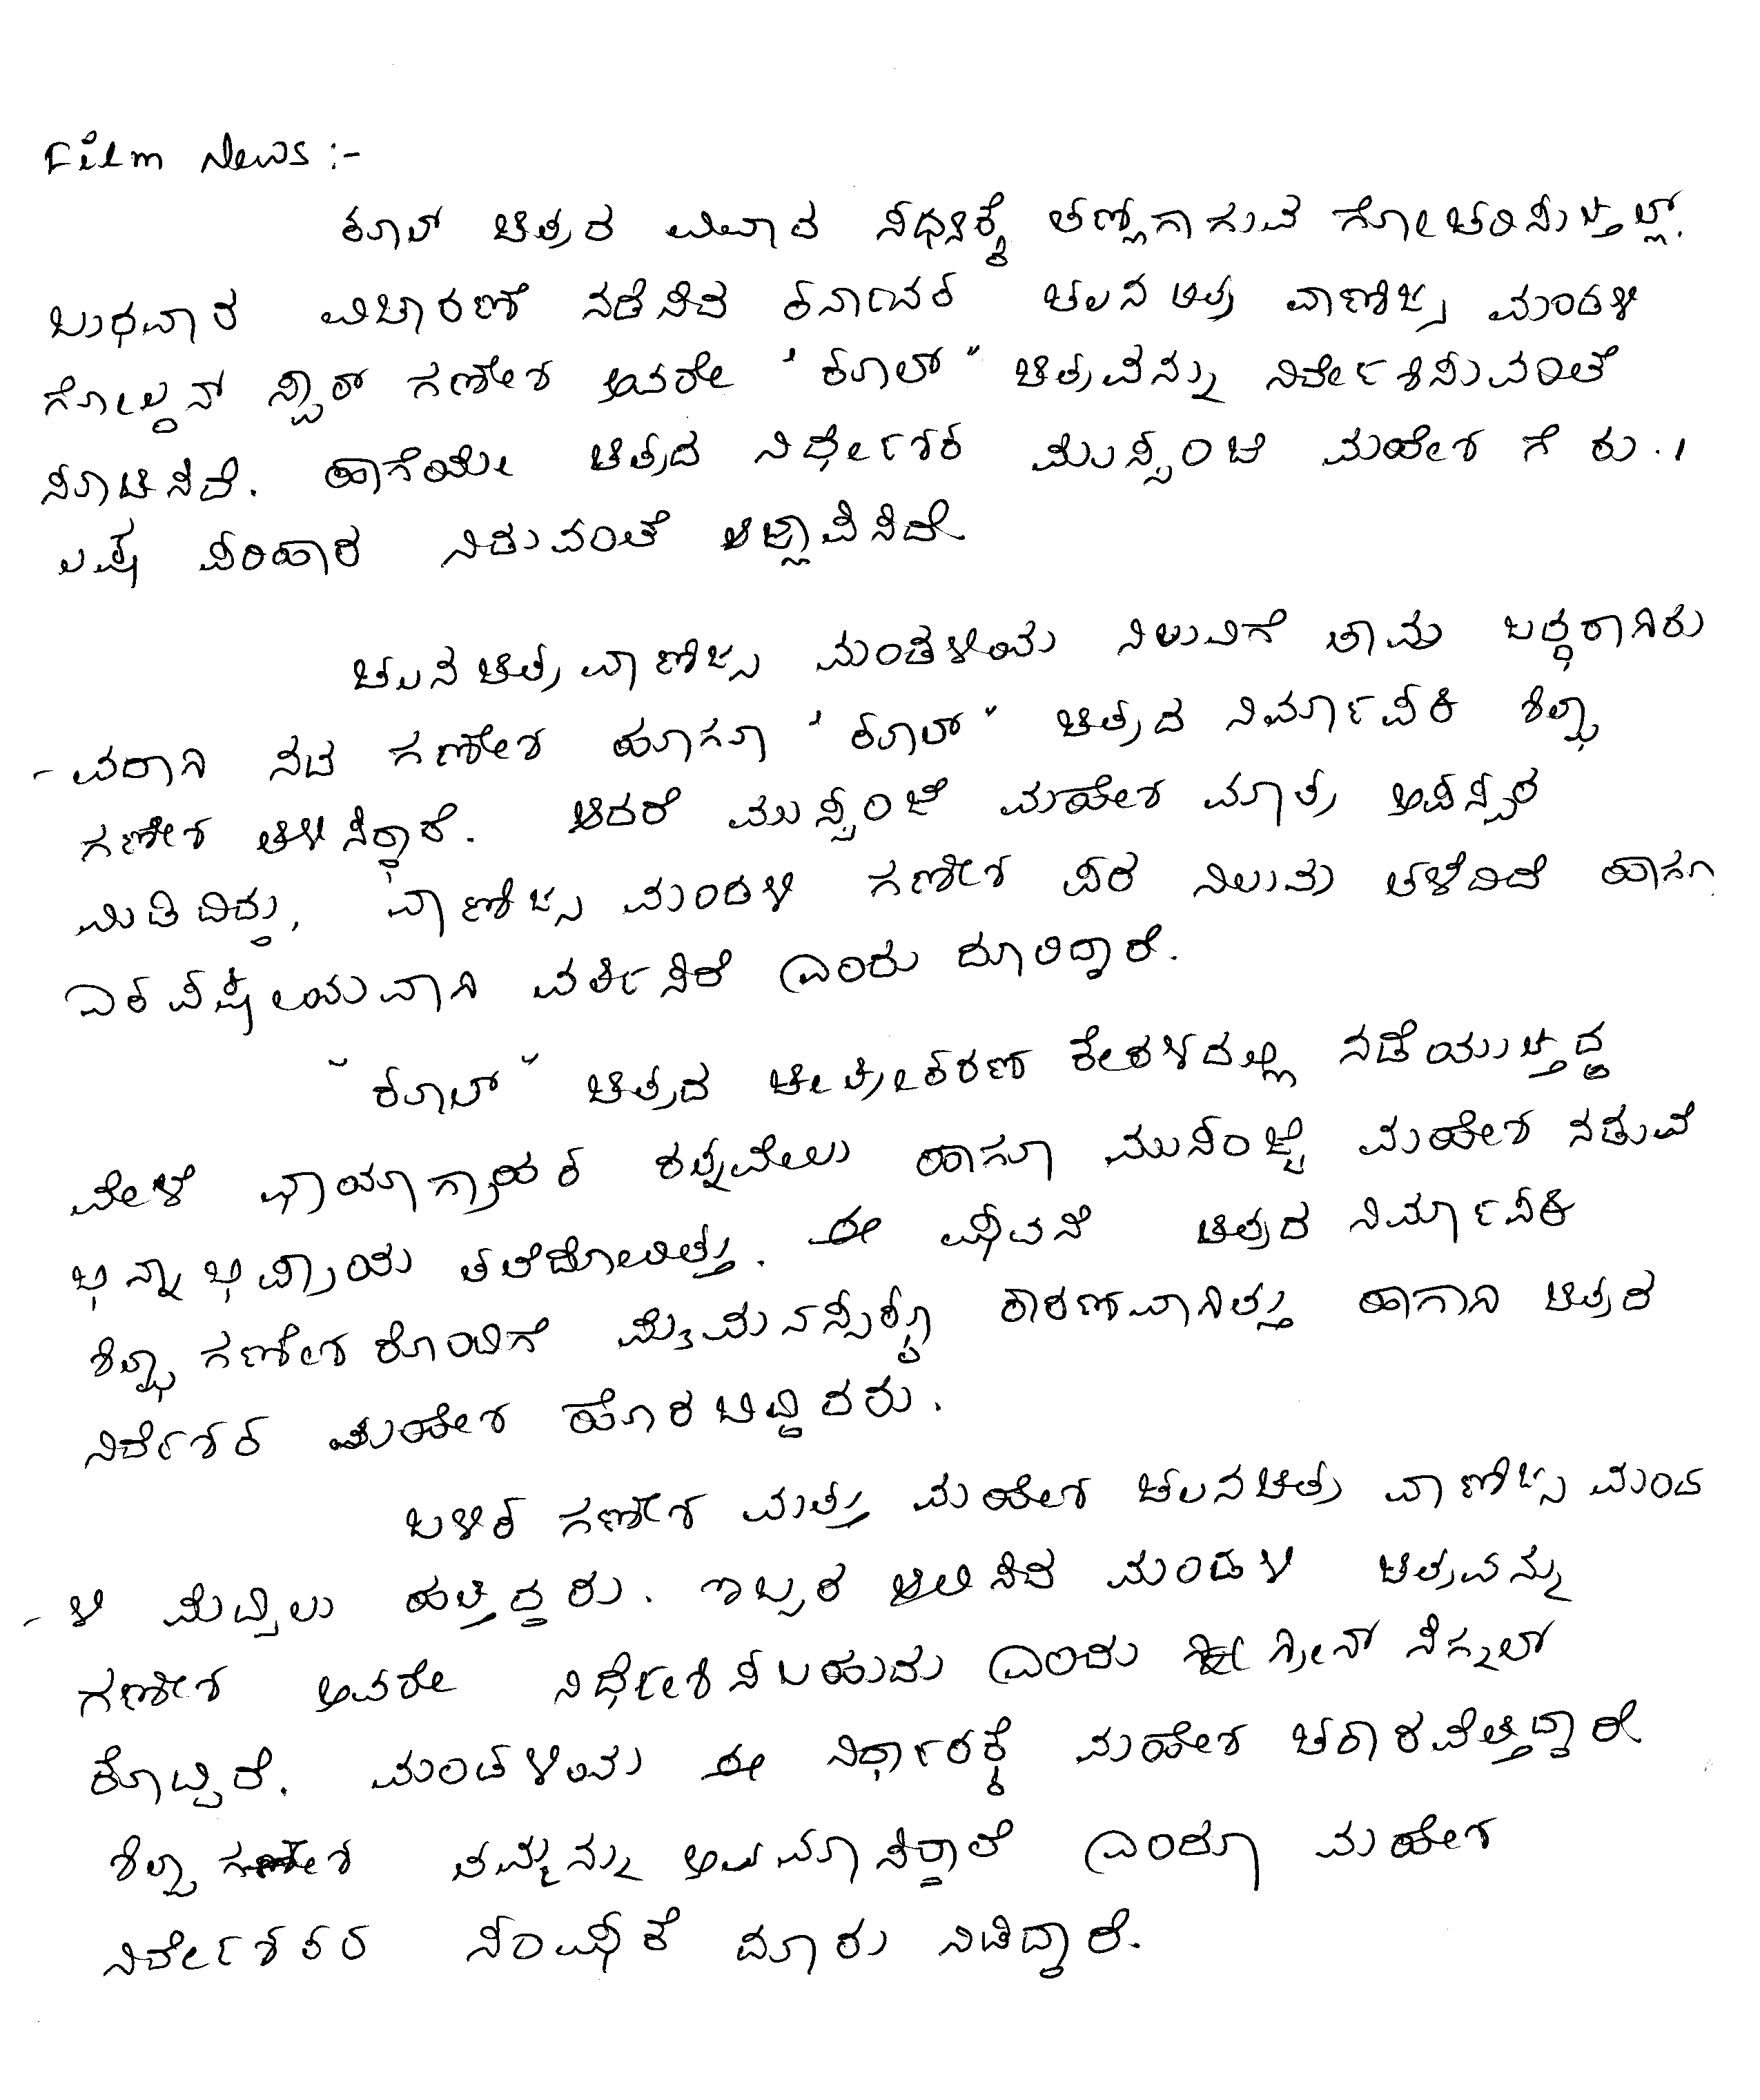 Film News :-
ಕೂಲ್ ಚಿತ್ರದ ವಿವಾದ ಸಧ್ಯಕ್ಕೆ ತಣ್ಣಗಾಗುವ ಗೋಚರಿಸುತ್ತಿಲ್ಲ.
ಬುಧವಾರ ವಿಚಾರಣೆ ನಡೆಸಿದ ಕರ್ನಾಟಕ ಚಲನ ಚಿತ್ರ ವಾಣಿಜ್ಯ ಮಂಡಳಿ
ಗೋಲ್ಡನ್ ಸ್ಟಾರ್ ಗಣೇಶ ಅವರೇ 'ಕೂಲ್" ಚಿತ್ರವನ್ನು ನಿರ್ದೇಶಿಸುವಂತೆ
ಸೂಚಿಸಿದೆ. ಹಾಗೆಯೇ ಚಿತ್ರದ ನಿರ್ಧೇಶಕ ಮುಸ್ಸಂಜೆ ಮಹೇಶ ಗೆ ರು.1
ಲಕ್ಷ ಪರಿಹಾರ ನೀಡುವಂತೆ ಆಜ್ಞಾಪಿಸಿದೆ
ಚಲನ ಚಿತ್ರ ವಾಣಿಜ್ಯ ಮಂಡಳಿಯ ನಿಲುವಿಗೆ ತಾವು ಬದ್ಧರಾಗಿರು
- ವದಾಗಿ ನಟ ಗಣೇಶ ಹಾಗೂ 'ಕೂಲ್" ಚಿತ್ರದ ನಿರ್ಮಾಪಕಿ ಶಿಲ್ಪಾ
ಗಣೇಶ ತಿಳಿಸಿದ್ದಾರೆ. ಆದರೆ ಮುಸ್ಸಂಜೆ ಮಹೇಶ ಮಾತ್ರ ಅಪಸ್ವರ
ಮಿಡಿದಿದ್ದು, ವಾಣಿಜ್ಯ ಮಂಡಳಿ ಗಣೇಶ ಪರ ನಿಲುವು ತಳೆದಿದೆ ಹಾಗೂ
ಏಕ ಪಕ್ಷೀಯವಾಗಿ ವರ್ತಿಸಿದೆ ಎಂದು ದೂರಿದ್ದಾರೆ.
"ಕೂಲ್" ಚಿತ್ರದ ಚಿತ್ರೀಕರಣ ಕೇರಳದಲ್ಲಿ ನಡೆಯುತ್ತಿದ್ದ
ವೇಳೆ ಛಾಯಾಗ್ರಾಹಕ ರತ್ನವೇಲು ಹಾಗೂ ಮುಸಂಜ್ಜೆ ಮಹೇಶ ನಡುವೆ
ಭಿನ್ನಾಭಿಪ್ರಾಯ ತಲೆದೋರಿತ್ತು. ಈ ಘಟನೆ ಚಿತ್ರದ ನಿರ್ಮಾಪಕಿ
ಶಿಲ್ಪಾ ಗಣೇಶರೊಂದಿಗೆ ಕಾರಣವಾಗಿತ್ತು ಹಾಗಾಗಿ ಚಿತ್ರದ
ನಿರ್ದೇಶಕ ಮಹೇಶ ಹೊರ ಬಿದ್ದಿದರು.
ಬಳಿಕ ಗಣೇಶ ಮತ್ತು ಮಹೇಶ ಚಲನಚಿತ್ರ ವಾಣಿಜ್ಯ ಮಂಡ
- ಳಿ ಮೆಟ್ಟಿಲು ಹತ್ತಿದ್ದರು. ಇಬ್ಬರ ಆಲಿಸಿದ ಮಂಡಳಿ ಚಿತ್ರವನ್ನು
ಗಣೇಶ ಅವರೇ ನಿರ್ಧೇಶಿಸಬಹುದು ಎಂದು ಗ್ರೀನ್ ಸಿಗ್ನಲ್
ಕೊಟ್ಟಿದೆ. ಮಂಡಳಿಯ ಈ ನಿರ್ಧಾರಕ್ಕೆ ಮಹೇಶ ಚಕಾರವೆತ್ತಿದ್ದಾರೆ
ಶಿಲ್ಪಾ ಗಣೇಶ ತಮ್ಮನ್ನು ಅವಮಾನಿಸಿದ್ದಾರೆ ಎಂದೂ ಮಹೇಶ
ನಿರ್ದೇಶಕರ ಸಂಘಕೆ ದೂರು ನೀಡಿದ್ದಾರೆ.